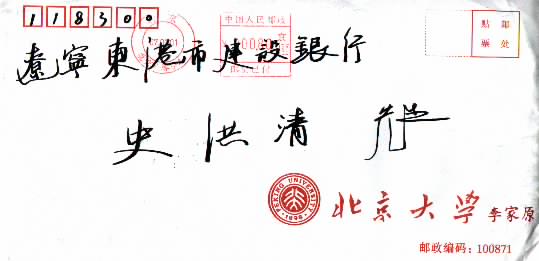 118300
中国人民邮政
贴邮
票处
遼寧東港市建設銀行
史洪清
PEKING UNIVERSITY
1898
北京大学 李家原
邮政编码：100871